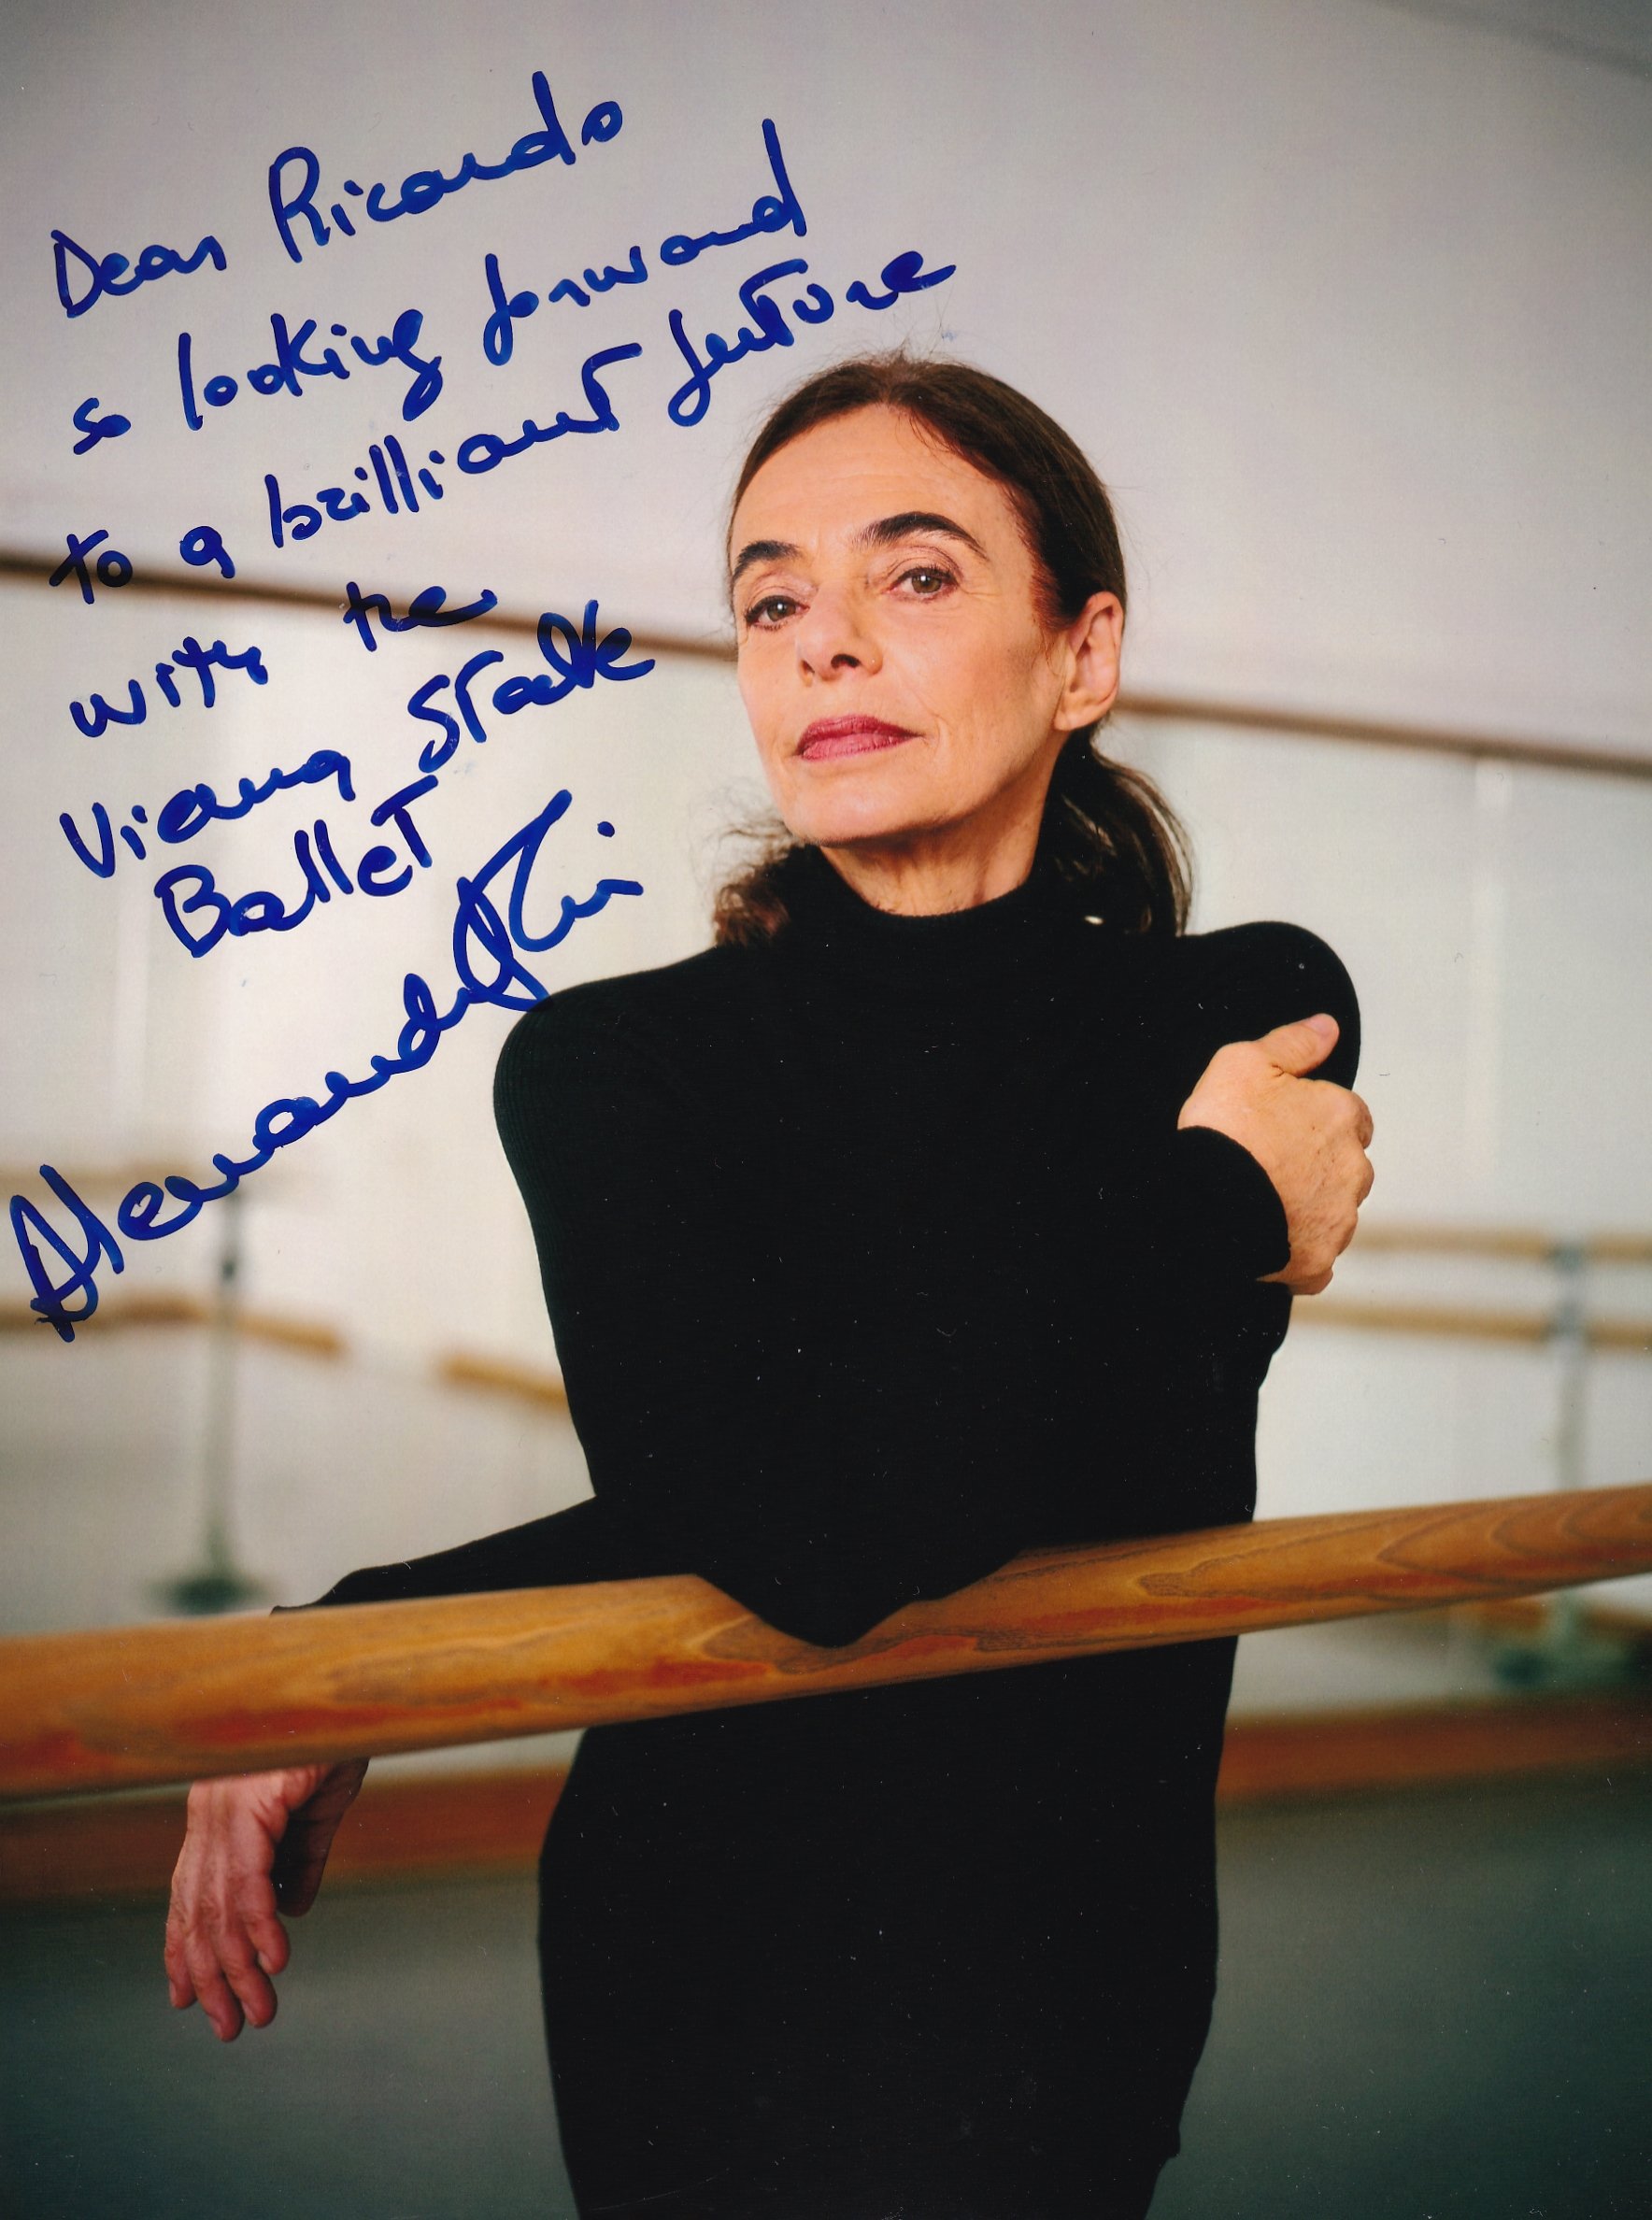 Dear Ricardo
so looking forward
to a brilliant future
with the
Vienna State
Ballet
Alessandra